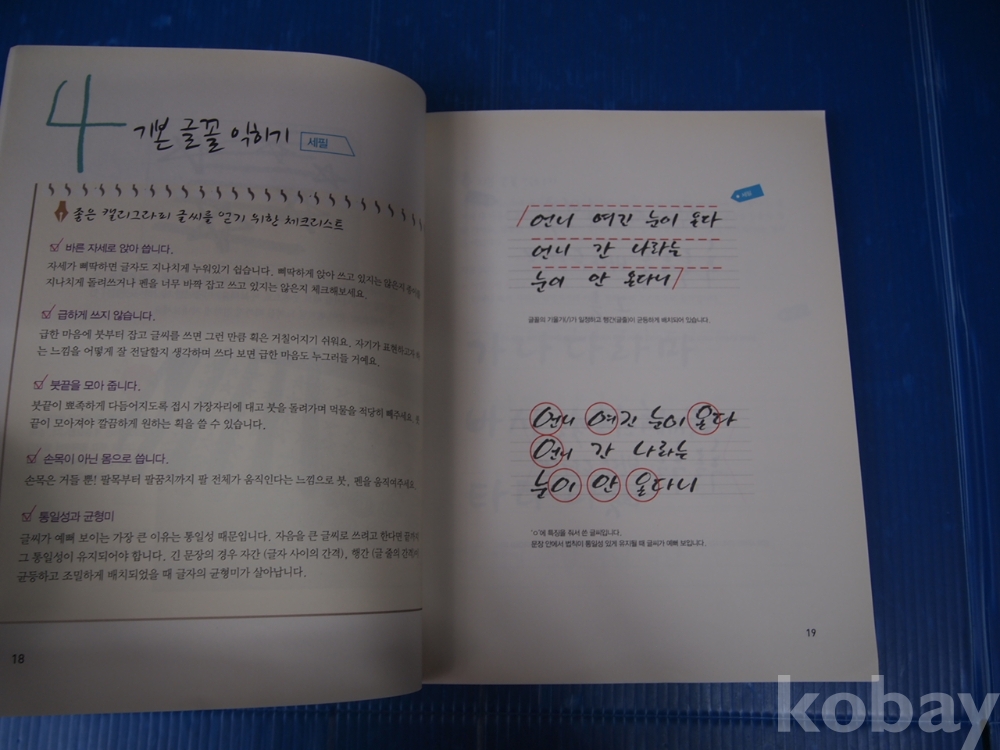 4
기본 글꼴 익히기 세필
좋은 캘리그라피 글씨를 얻기 위한 체크리스트
바른 자세로 앉아 씁니다.
자세가 삐딱하면 글자도 지나치게 누워있기 쉽습니다. 삐딱하게 앉아 쓰고 있지는 않은지
지나치게 돌려쓰거나 펜을 너무 바짝 잡고 쓰고 있지는 않은지 체크해보세요.
급하게 쓰지 않습니다.
급한 마음에 붓부터 잡고 글씨를 쓰면 그런 만큼 획은 거칠어지기 쉬워요. 자기가 표현하고자
는 느낌을 어떻게 잘 전달할지 생각하며 쓰다 보면 급한 마음도 누그러들 거예요.
붓끝을 모아 줍니다.
붓끝이 뾰족하게 다듬어지도록 접시 가장자리에 대고 붓을 돌려가며 먹물을 적당히 빼주세요.
끝이 모아져야 깔끔하게 원하는 획을 쓸 수 있습니다.
손목이 아닌 몸으로 씁니다.
손목은 거들 뿐! 팔목부터 팔꿈치까지 팔 전체가 움직인다는 느낌으로 붓, 펜을 움직여주세요
통일성과 균형미
글씨가 예뻐 보이는 가장 큰 이유는 통일성 때문입니다. 자음을 큰 글씨로 쓰려고 한다면 끝까지
그 통일성이 유지되어야 합니다. 긴 문장의 경우 자간 (글자 사이의 간격), 행간 (글 줄의 간격)이
균등하고 조밀하게 배치되었을 때 글자의 균형미가 살아납니다.
18
세필
언니 여긴 눈이 온다
언니 간 나라는
눈이 안 온다니
글꼴의 기울기(/)가 일정하고 행간(글줄)이 균등하게 배치되어 있습니다.
언니 여긴 눈이 온다
언니 간 나라는
눈이 안 온다니
'ㅇ'에 특징을 줘서 쓴 글씨입니다.
문장 안에서 법칙이 통일성 있게 유지될 때 글씨가 예뻐 보입니다.
19
kobay